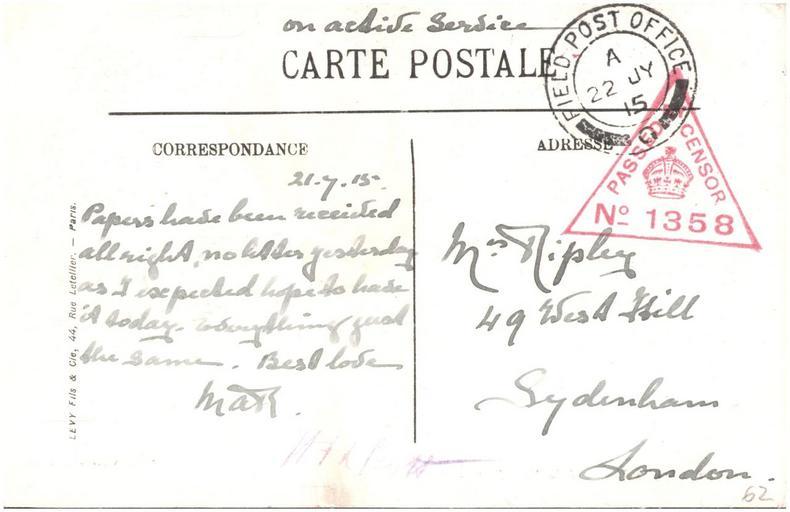 on active Service
CARTE POSTALE
FIELD POST OFFICE
A
22 JY
15
PASSED CENSOR
No 1358
CORRESPONDANCE
ADRESSE
21.7.15.
Papers have been received
all right, no letter yesterday
as I expected hope to have
it today. Everything just
the same. Best love
Mrs Ripley
49 West Hill
Sydenham
London.
LEVY Fils & Cie, 44, Rue Letellier. — Paris.
62